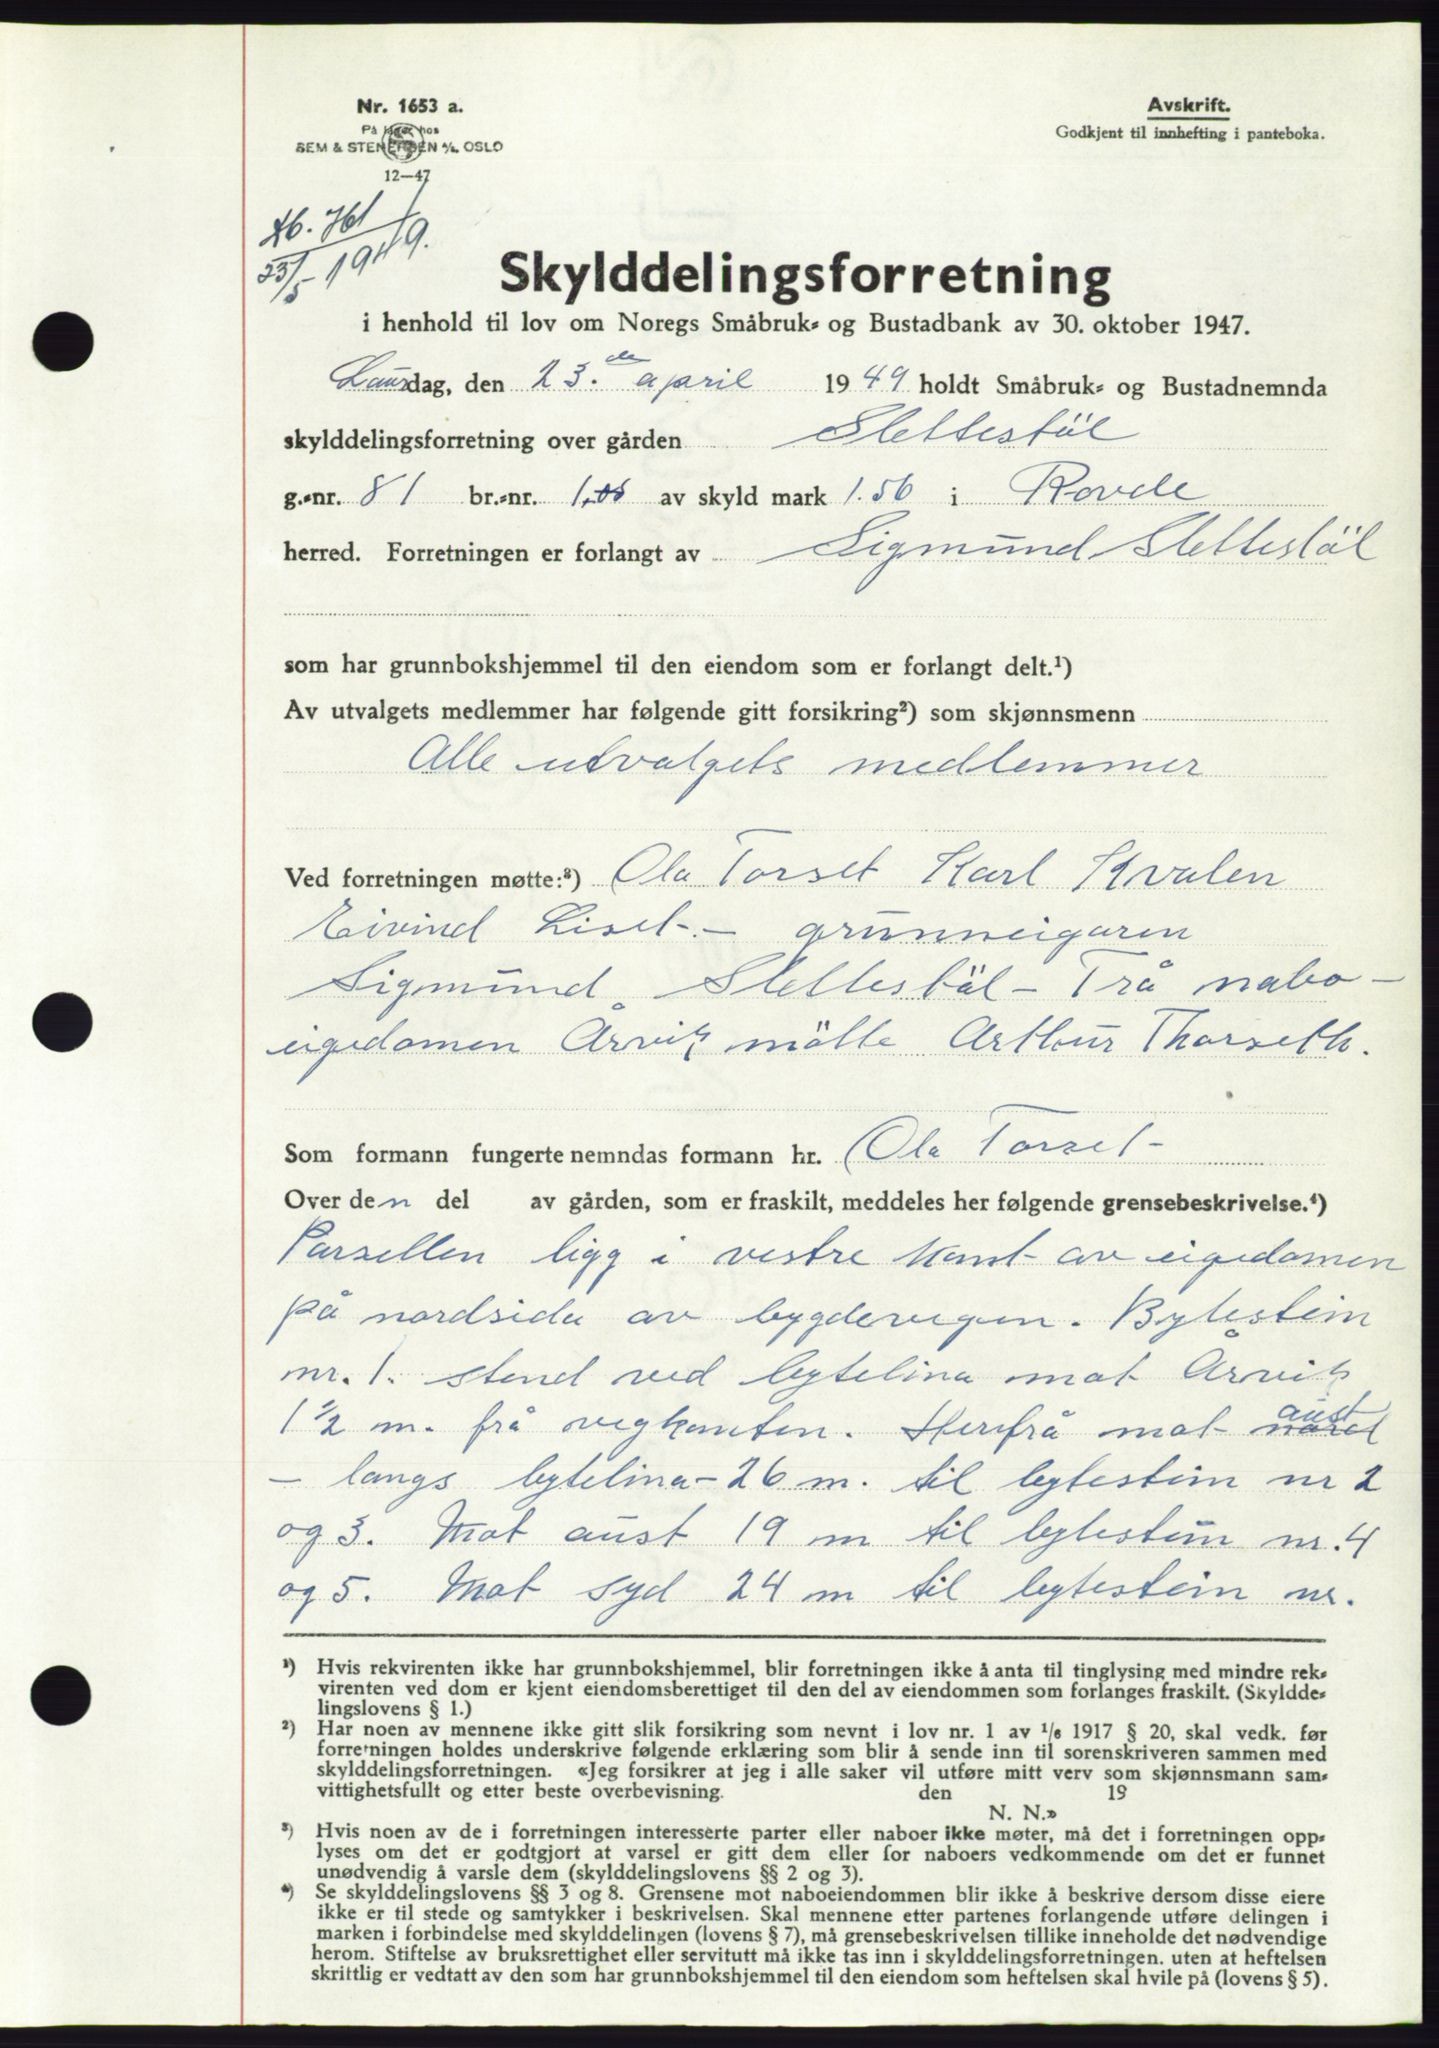 Nr. 1653 a.
På lager hos
SEM & STENERSEN A/S OSLO
12—47
Avskrift.
Godkjent til innhefting i panteboka.
23/5 - 1949.
Skylddelingsforretning
i henhold til lov om Noregs Småbruk- og Bustadbank av 30. oktober 1947.
Laurdag, den 23. de april 1949 holdt Småbruk- og Bustadnemnda
skylddelingsforretning over gården Slettestöl
g.-nr. 81 br.-nr. 1 av skyld mark 1.56 i Rovde
herred. Forretningen er forlangt av Sigmund Slettestöl
som har grunnbokshjemmel til den eiendom som er forlangt delt.¹)
Av utvalgets medlemmer har følgende gitt forsikring²) som skjønnsmenn
Alle utvalgets medlemmer
Ved forretningen møtte:³) Ola Torset Karl Kvalen
Eivind Liset - grunneigaren
Sigmund Slettestöl - Frå nabo-
eigedomen Årvik mötte Arthur Thorseth.
Som formann fungerte nemndas formann hr. Ola Torset
Over den del av gården, som er fraskilt, meddeles her følgende grensebeskrivelse.⁴)
Parsellen ligg i vestre kant av eigedomen
på nordsida av bygdevegen. Bytestein
nr. 1. stend ved bytelina mot Årvik
1 1/2 m. frå vegkanten. Herfrå mot nord aust
- langs bytelina - 26 m. til bytestein nr 2
og 3. Mot aust 19 m til bytestein nr. 4
og 5. Mot syd 24 m til bytestein nr.
¹) Hvis rekvirenten ikke har grunnbokshjemmel, blir forretningen ikke å anta til tinglysing med mindre rek-
virenten ved dom er kjent eiendomsberettiget til den del av eiendommen som forlanges fraskilt. (Skyldde-
lingslovens § 1.)
²) Har noen av mennene ikke gitt slik forsikring som nevnt i lov nr. 1 av 1/6 1917 § 20, skal vedk. før
forretningen holdes underskrive følgende erklæring som blir å sende inn til sorenskriveren sammen med
skylddelingsforretningen. «Jeg forsikrer at jeg i alle saker vil utføre mitt verv som skjønnsmann sam-
vittighetsfullt og etter beste overbevisning. den 19
N. N.»
³) Hvis noen av de i forretningen interesserte parter eller naboer ikke møter, må det i forretningen opp-
lyses om det er godtgjort at varsel er gitt dem eller for naboers vedkommende om det er funnet
unødvendig å varsle dem (skylddelingslovens §§ 2 og 3).
⁴) Se skylddelingslovens §§ 3 og 8. Grensene mot naboeiendommen blir ikke å beskrive dersom disse eiere
ikke er til stede og samtykker i beskrivelsen. Skal mennene etter partenes forlangende utføre delingen i
marken i forbindelse med skylddelingen (lovens § 7), må grensebeskrivelsen tillike inneholde det nødvendige
herom. Stiftelse av bruksrettighet eller servitutt må ikke tas inn i skylddelingsforretningen. uten at heftelsen
skrittlig er vedtatt av den som har grunnbokshjemmel til den eiendom som heftelsen skal hvile på (lovens § 5).